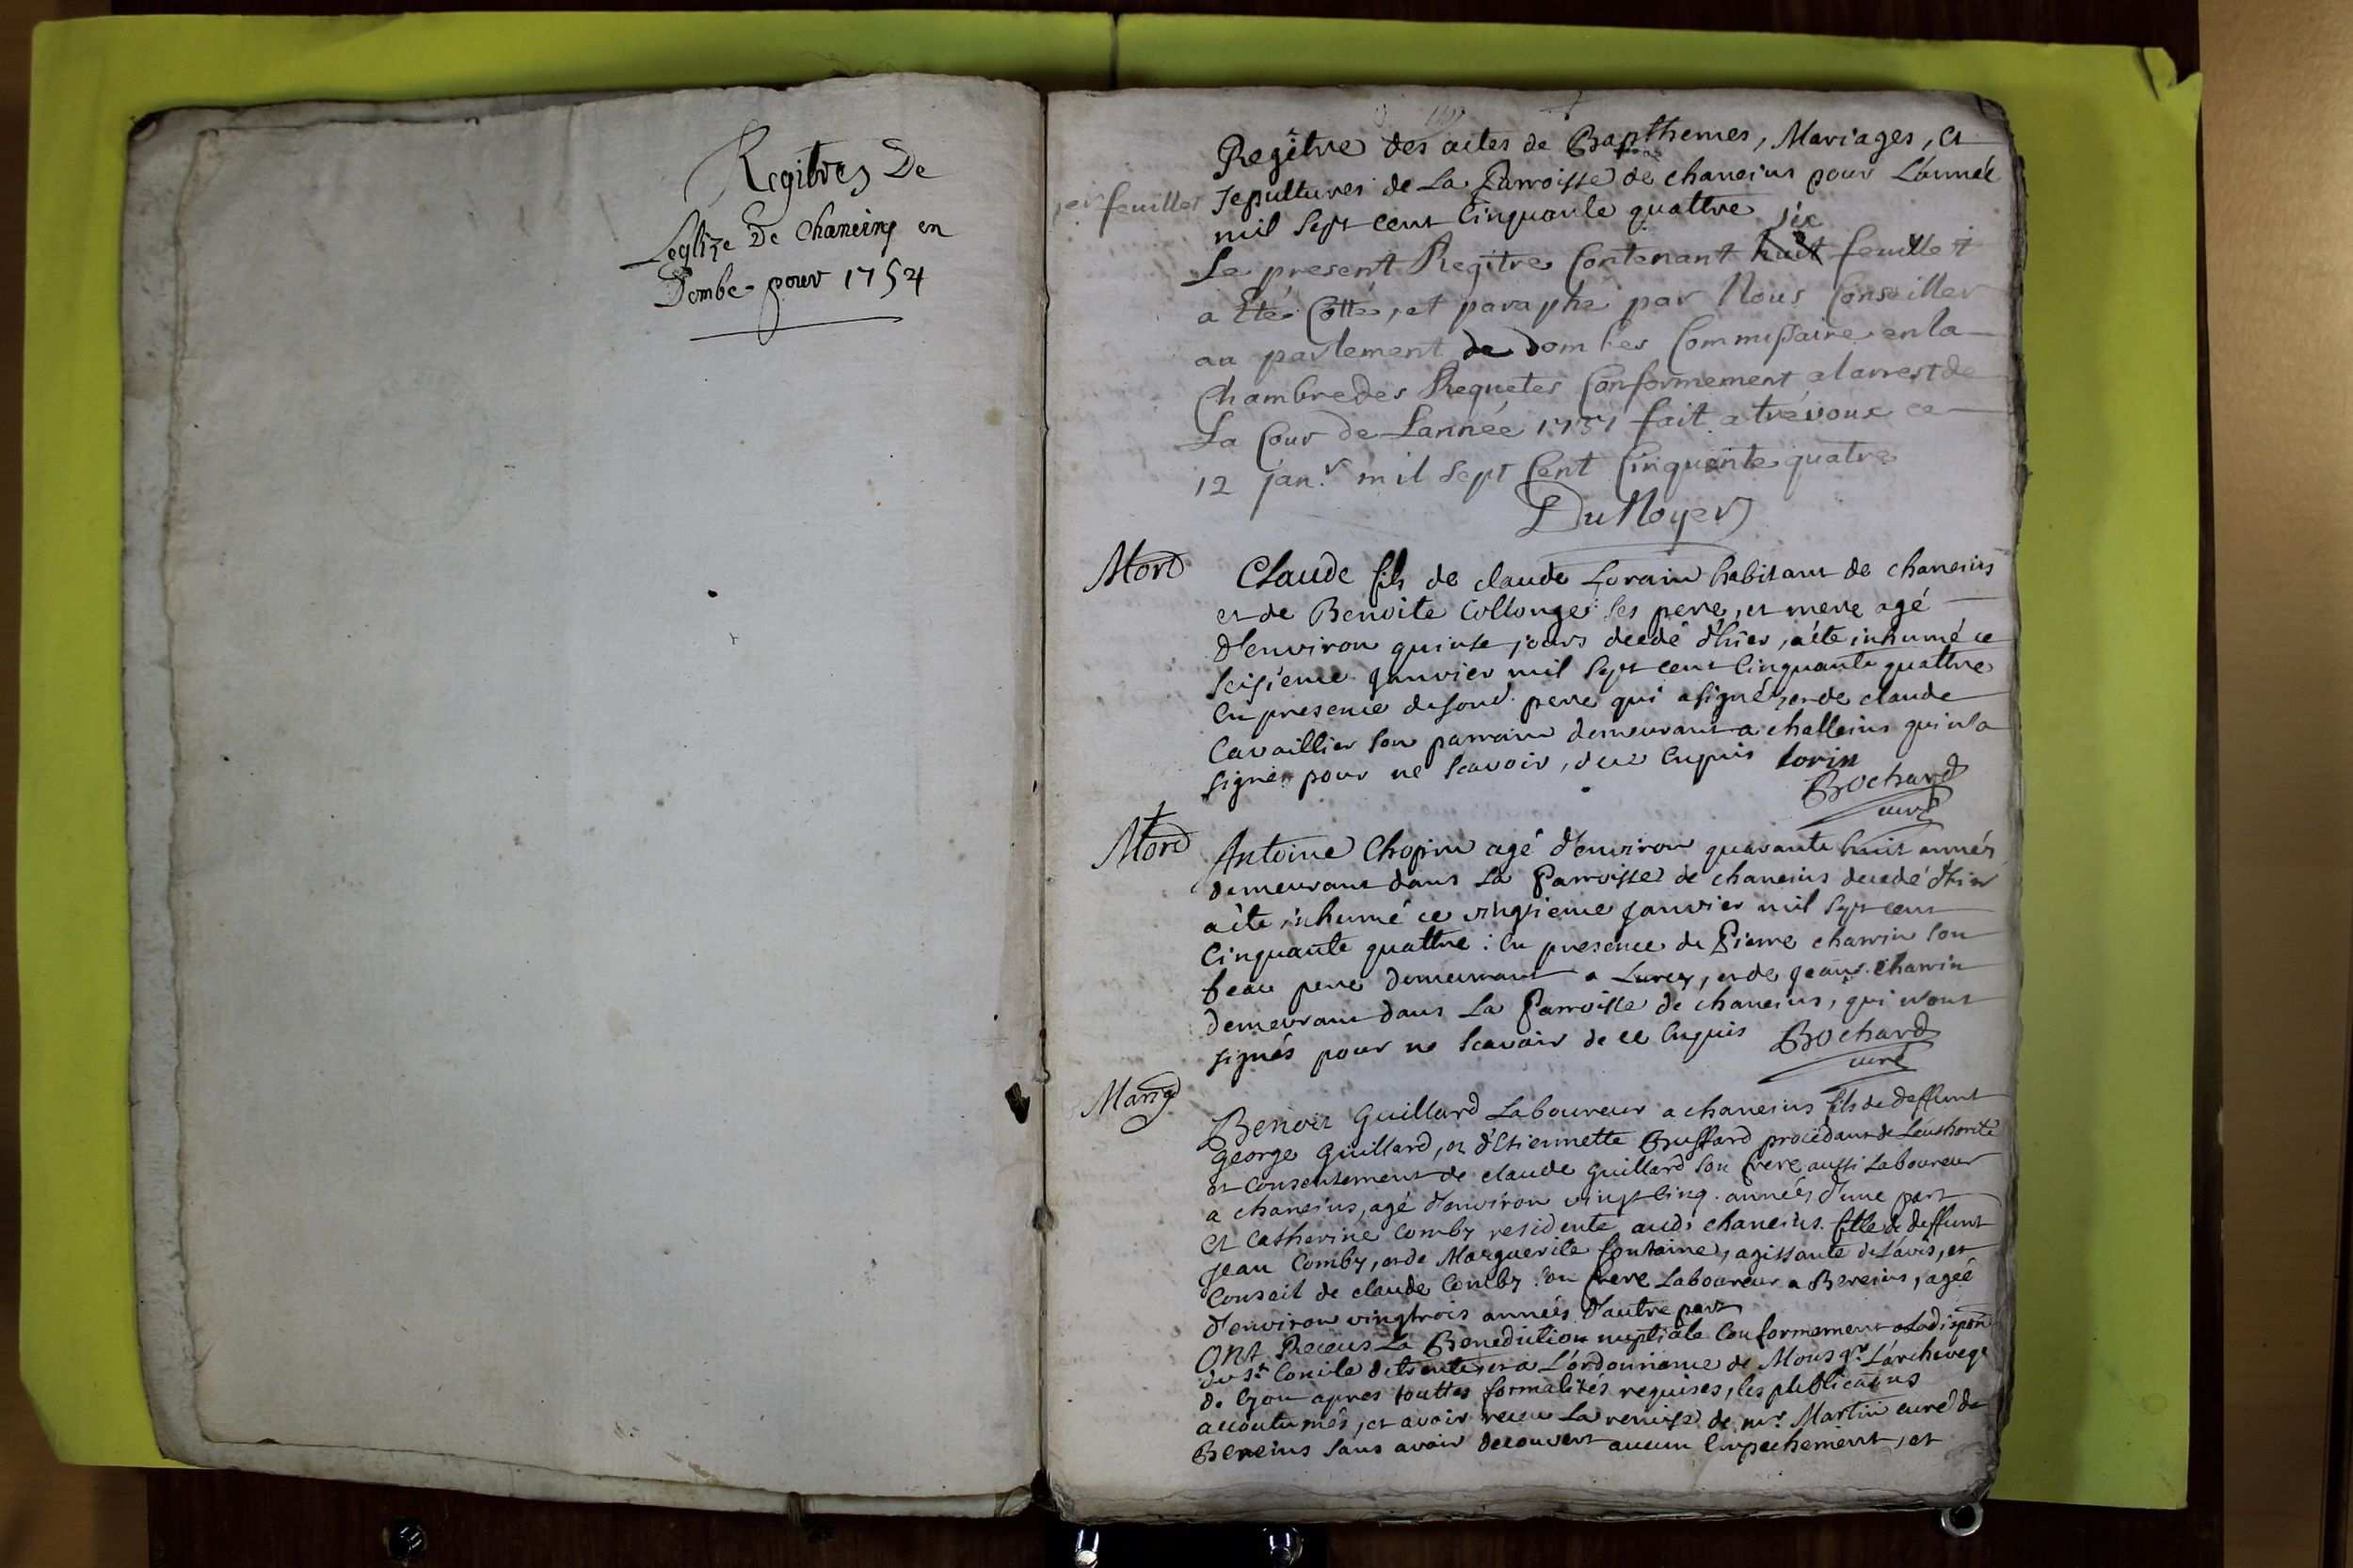 Regitres De
Leglize De Chaneins en
Dombe pour 1754
Regître des actes de Bapthemes, Mariages, et
1er feuillet
sepultures de La Parroisse de chaneins pour L'année
mil sept cent Cinquante quattre
six
Le present Regitre Contenant huit feuillet
a Eté Cotté, et paraphé par Nous Conseiller
au parlement de dombes Commissaire en la
Chambre des Requetes Conformement a larrest de
La Cour de Lannée 1731 fait a trévoux ce
12 janr. mil sept Cent Cinquante quatre
DuNoyer
Mort
Claude fils de claude Lorain habitant de chaneins
et de Benoite Collonge ses pere, et mere agé
d'environ quinse jours decedé d'hier, a été inhumé ce
seisiéme Janvier mil sept cent Cinquante quattre
En presence de sond. pere qui a signé, et de claude
Cavaillier son parrain demeurant a challeins qui n'a
signé pour ne scavoir, de ce Enquis lorin
Bochard
curé
Mort
Antoine Chopin agé d'environ quarante huit années
demeurant dans La Parroisse de chaneins decedé d'hier
a été inhumé ce vingtieme Janvier mil sept cent
Cinquante quattre : En presence de Pierre charvin son
beau pere demeurant a Lurcy, et de Jean charvin
demeurant dans La Parroisse de chaneins, qui n'ont
signés pour ne scavoir de ce Enquis Bochard
curé
Mariag
Benoit Guillard Laboureur a chaneins fils de deffunt
George Guillard, et d'Etiennette Buffard procedant de L'authorité
et Consentement de claude Guillard son frere aussi Laboureur
a chaneins, agé d'environ vingt Cinq années d'une part
Et Catherine Comby residente aud. chaneins fille de deffunt
Jean Comby, et de Marguerite fontaine, agissante de L'avis, et
Conseil de claude Comby son frere Laboureur a Bereins, agée
d'environ vingtrois années d'autre part
Ont Receus La Benediction nuptiale Conformement a La dispon
du st Concile de trente, et a L'ordonnance de Monsgr. L'archeveqe
de Lyon apres touttes formalités requises, les publications
accoutumés, et avoir receu La remise de mr. Martin curé de
Bereins sans avoir decouvert aucun Empechement, et